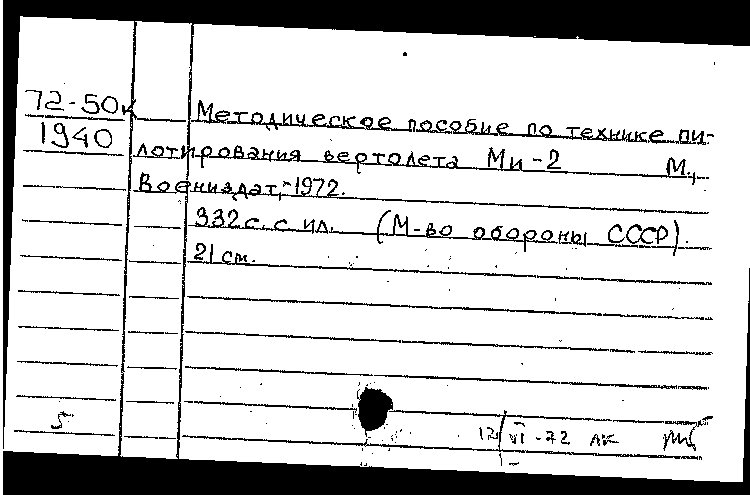 72-50к
1940
Методическое пособие по технике пи-
лотирования вертолета Ми-2 М.,
Воениздат, 1972.
332 с. с ил. (М-во обороны СССР).
21 см.
5
12/VI-72 АК